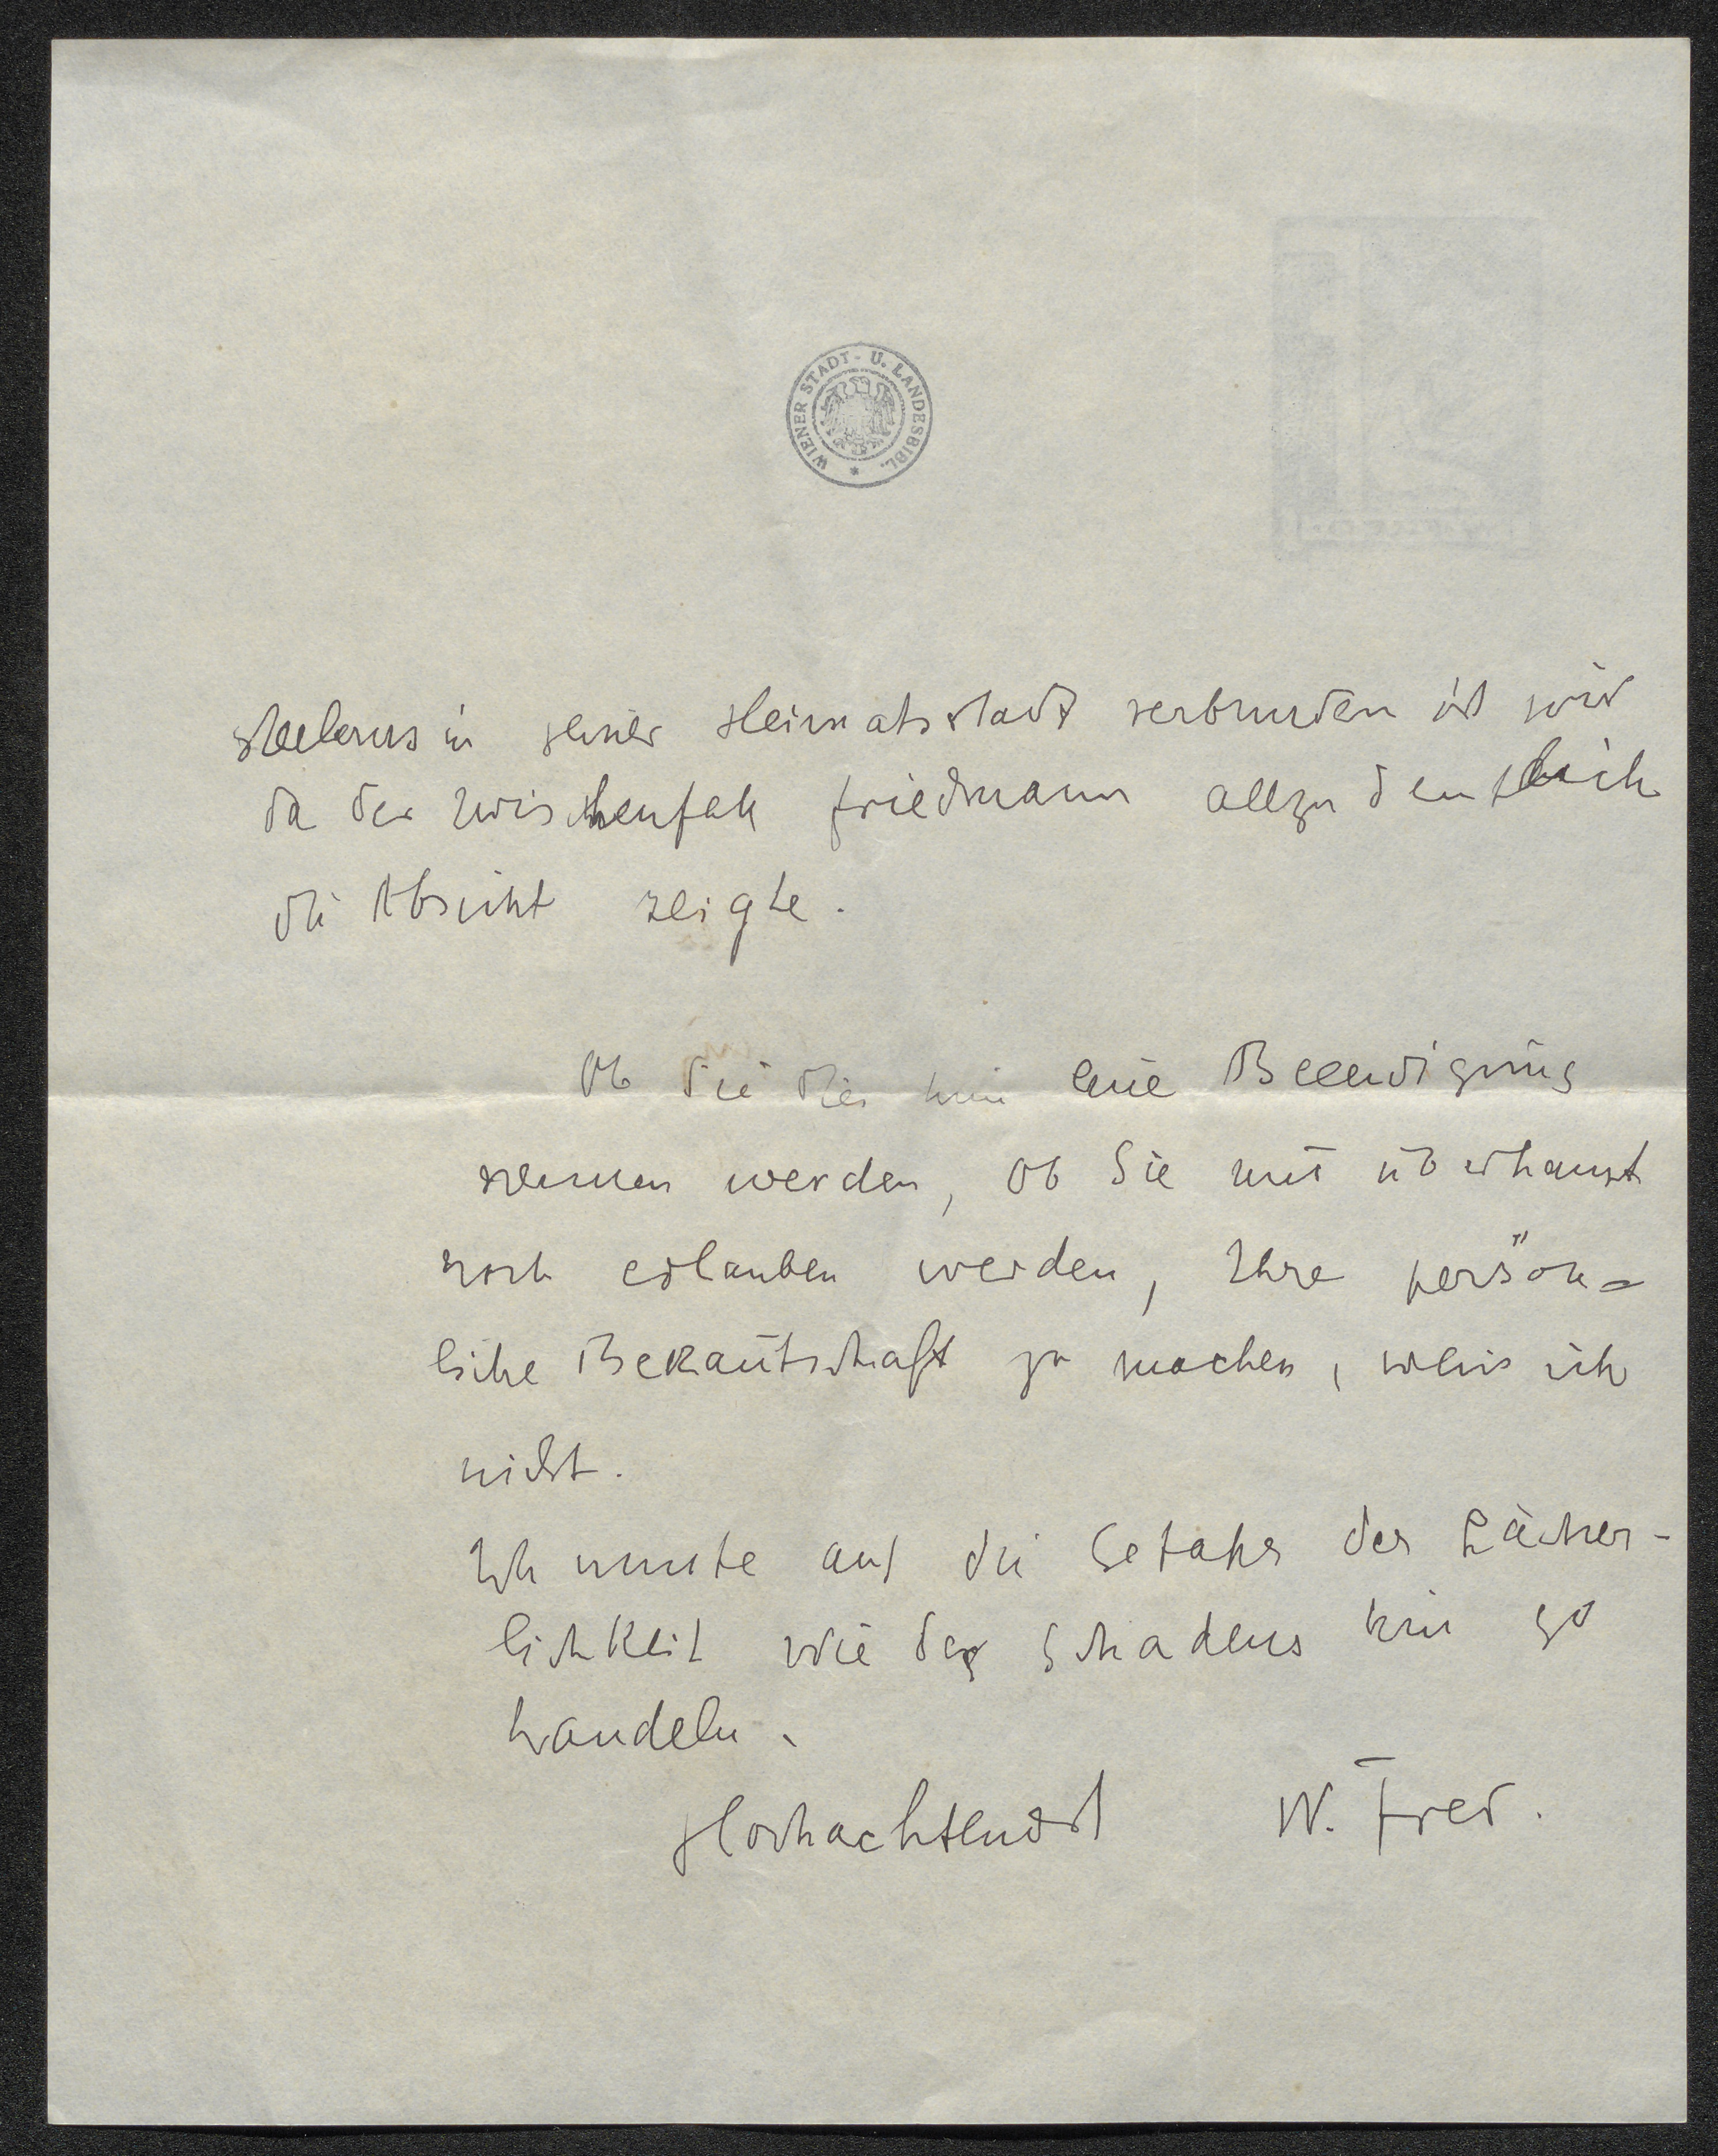 WIENER STADT- U. LANDESBIBL.
in seiner Heimatsstadt verbunden ist wie
da der Zwischenfall Friedmann allzu deutlich
die Absicht zeigte.
Ob Sie dies nun eine Beendigung
nennen werden, ob Sie mir überhaupt
noch erlauben werden, Ihre persön=
liche Bekan̄tschaft zu machen, weiss ich
nicht.
Ich musste auf die Gefahr der Lächer-
lichkeit wie des Schadens hin so
handeln.
Hochachtendst W. Fred.